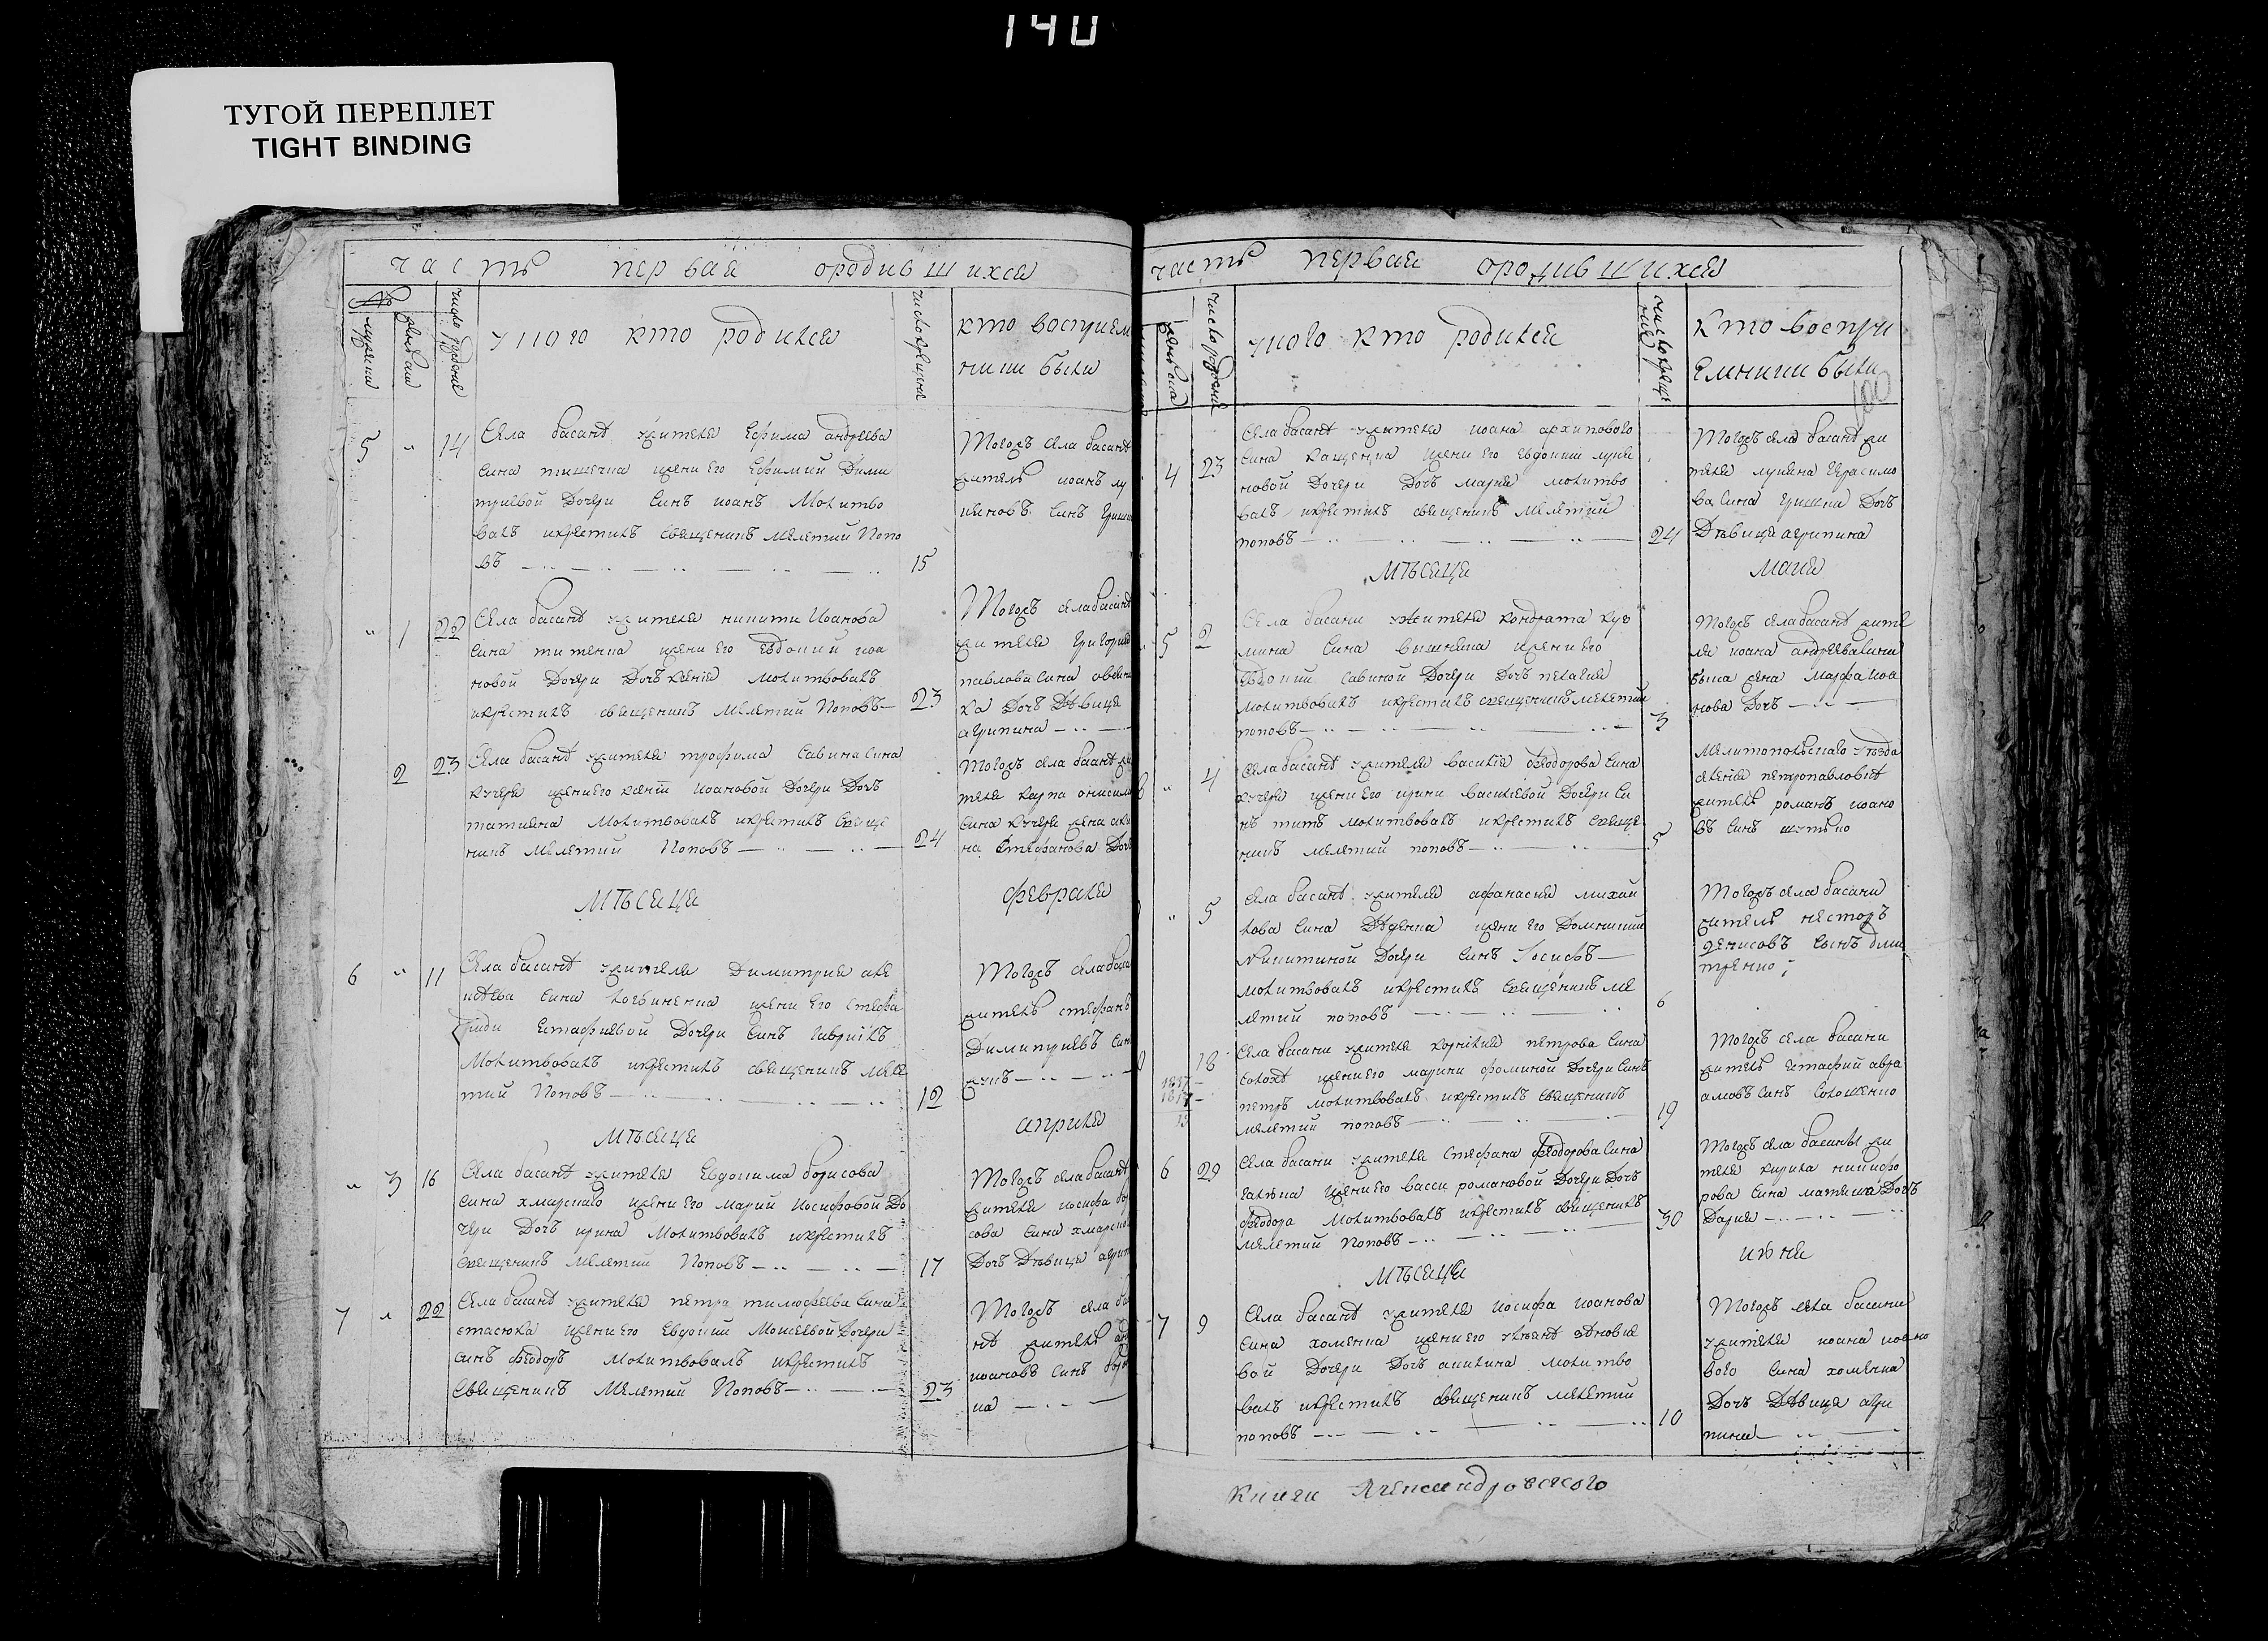 140
ТУГОЙ ПЕРЕПЛЕТ
TIGHT BINDING
часть первая ородившихся
№
число рождения
у кого кто родился
число крещения
кто восприем
ники были
5 " 14
Села басанѣ жителя Ефима андреева
сина жени его Ефимии Дими
триевой Дочери Синъ иоанъ Молитво
валъ икрестилъ священикъ мелетий Попо
въ 15
Тогожъ села басанѣ
житель иоанъ лу
кяновъ синъ
" 1 22
Села басанѣ жителя никити Иоанова
сина титенка жени его Евдокии иоа
новой Дочери Дочъ Ксенія молитвовалъ
икрестилъ священикъ Мелетий Поповъ 23
Тогожъ села басанѣ
жителя григория
павлова сина
ка Дочъ Дѣвица
агрипина
2 23
Села басанѣ жителя трофима Савина сина
кучера жени его Ксеніи иоановой Дочери Дочъ
татияна молитвовалъ икрестилъ свяще
никъ Мелетий Поповъ 24
Тогожъ села басанѣ жи
теля карпа онисим
сина кучера жена аки
на Стефанова Дочъ
мѣсяца февраля
6 " 11
Села басанѣ жителя Димитрия але
ксѣева сина логвиненка жени его стефа
ниди Естафиевой Дочери Синъ гавриілъ
Молитвовалъ икрестилъ священикъ меле
тий Поповъ 12
Тогожъ села баса
житель стефанъ
Димитриевъ син
жукъ
мѣсяца априля
" 3 16
Села басанѣ жителя Евдокима борисова
сина хмарскаго жени его Марии Иосифовой До
чери Дочъ ирина Молитвовалъ икрестилъ
священикъ мелетий Поповъ 17
Тогожъ села басанѣ
жителя иосифа бор
сова сина хмарско
Дочъ Дѣвица агрип
7 " 22
Села басанѣ жителя петра тимофеева сина
стасюка жени его Евдокии Моисеевой Дочери
синъ феодоръ молитвовалъ икрестилъ
священикъ Мелетий Поповъ 23
Тогожъ села ба
нѣ житель
иоановъ синъ
ка
часть первая ородившихся
число рождения
у кого кто родился
число креще
ния
кто воспри
емники были
100
4 23
Села басанѣ жителя иоана архипового
сина кащенка жени его Евдокии лукя
новой Дочери Дочъ мария молитво
валъ икрестилъ священикъ мелетий
поповъ 24
Тогожъ села басанѣ жи
теля лукяна герасимо
ва сина гришки Дочъ
Дѣвица агрипина
мѣсяца маия
5 2
Села басани жителя кондрата куз
мина сина вишняка жени его
Евдокии Савиной Дочери Дочъ пелагия
молитвовалъ икрестилъ священикъ мелетий
поповъ 3
Тогожъ села басанѣ жите
ля иоана андреева сина
быка жена марфа иоа
нова Дочъ
" 4
Села басанѣ жителя василія феодорова сина
кучера жени его ирини василіевой Дочери Си
нъ титъ молитвовалъ икрестилъ свяще
никъ мелетий поповъ 5
Мелитополскаго уѣзда
селенія петропавловкѣ
житель романъ иоано
въ синъ шутько
" 5
Села басанѣ жителя афанасия михай
лова сина Дѣденка жени его Домникии
Никитиной Дочери синъ Іосифъ
молитвовалъ икрестилъ священикъ ме
летий поповъ 6
Тогожъ села басани
житель несторъ
Денисовъ сынъ дми
тренко
18
Села басани жителя корнілия петрова сина
сохохѣ жени его марини фоминой Дочери Синъ
петръ молитвовалъ икрестилъ священикъ
мелетий поповъ 19
Тогожъ села басани
житель Естафий авра
амовъ Синъ Солошенко
6 29
Села басани жителя Стефана феодорова Сина
жени его васси романовой Дочери Дочъ
феодора Молитвовалъ икрестилъ священикъ
мелетий Поповъ 30
Тогожъ села басанѣ жи
теля кирила никифо
рова сина Дочъ
Дария
мѣсяца июня
7 9
Села басанѣ жителя иосифа иоанова
сина хоменка жени его улянѣ зѣновие
вой Дочери Дочъ акилина молитво
валъ икрестилъ священикъ мелетий
поповъ 10
Тогожъ села басани
жителя иоана иоано
вого сина хоменка
Дочъ Дѣвица агри
пина
книги Александровского